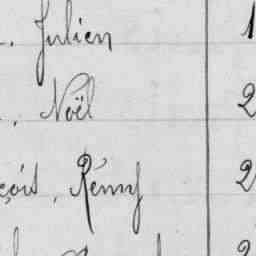 . Julien 1
. Noël 2
çois, Rémy 2
2